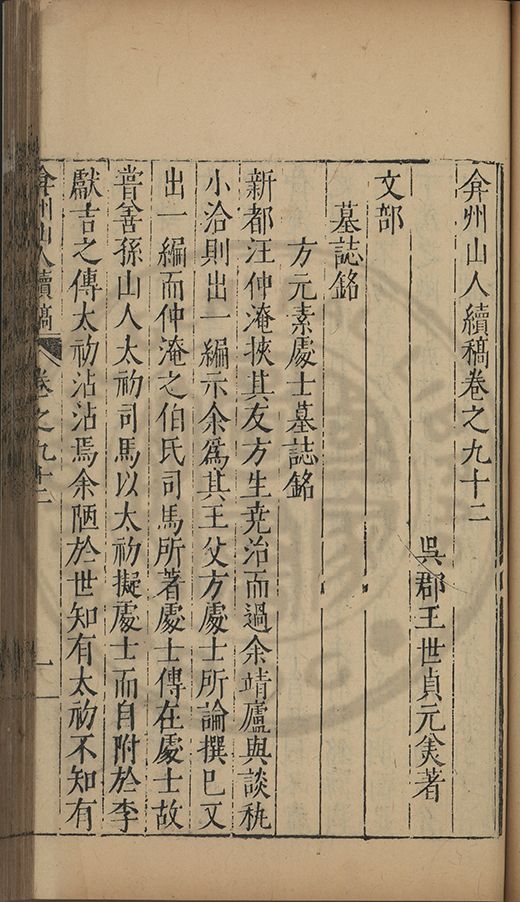 弇州山人續稿卷之九十二
吳郡王世貞元美著
文部
墓誌銘
方元素處士墓誌銘
新都汪仲淹挾其友方生堯治而過余靖廬與談秇
小洽則出一編示余爲其王父方處士所論撰已又
出一編而仲淹之伯氏司馬所著處士傳在處士故
嘗善孫山人太初司馬以太初擬處士而自附於李
獻吉之傳太初沾沾焉余陋於世知有太初不知有
弇州山人續稿 卷之九十二 一